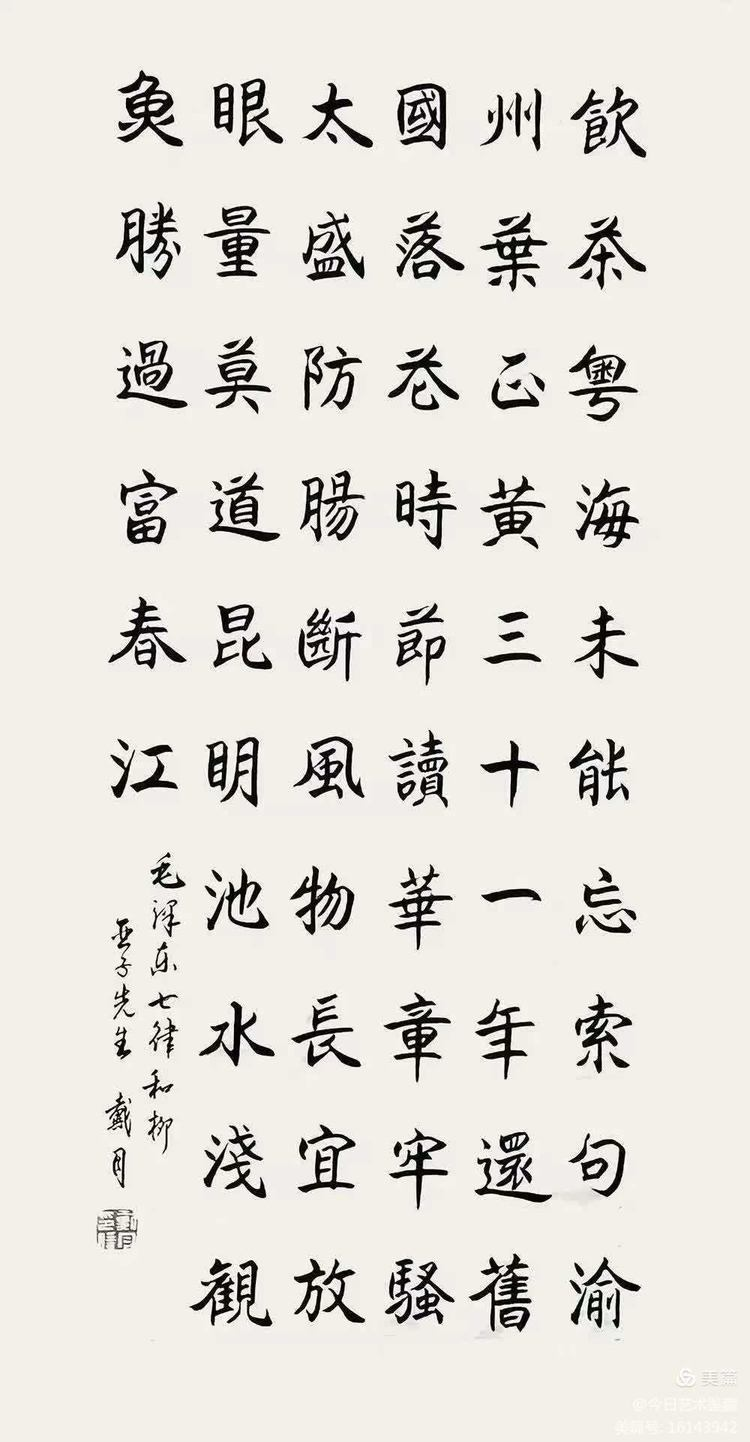 飲茶粤海未能忘索句渝
州葉正黄三十一年還舊
國落花時節讀華章牢騷
太盛防腸斷風物長宜放
眼量莫道昆明池水淺觀
魚勝過富春江
毛澤东七律和柳
亚子先生 戴月
美篇
@今日艺术
美篇号: 16143942